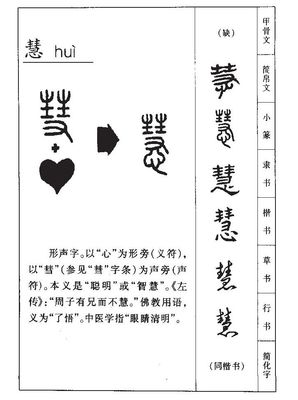 慧 huì
形声字。以“心”为形旁(义符),
以“彗”(参见“彗”字条)为声旁(声
符)。本义是“聪明”或“智慧”。《左
传》:“周子有兄而不慧。”佛教用语,
义为“了悟”。中医学指“眼睛清明”。
(缺)
慧
慧
慧
慧
慧
慧
(同楷书)
甲骨文
简帛文
小篆
隶书
楷书
草书
行书
简化字